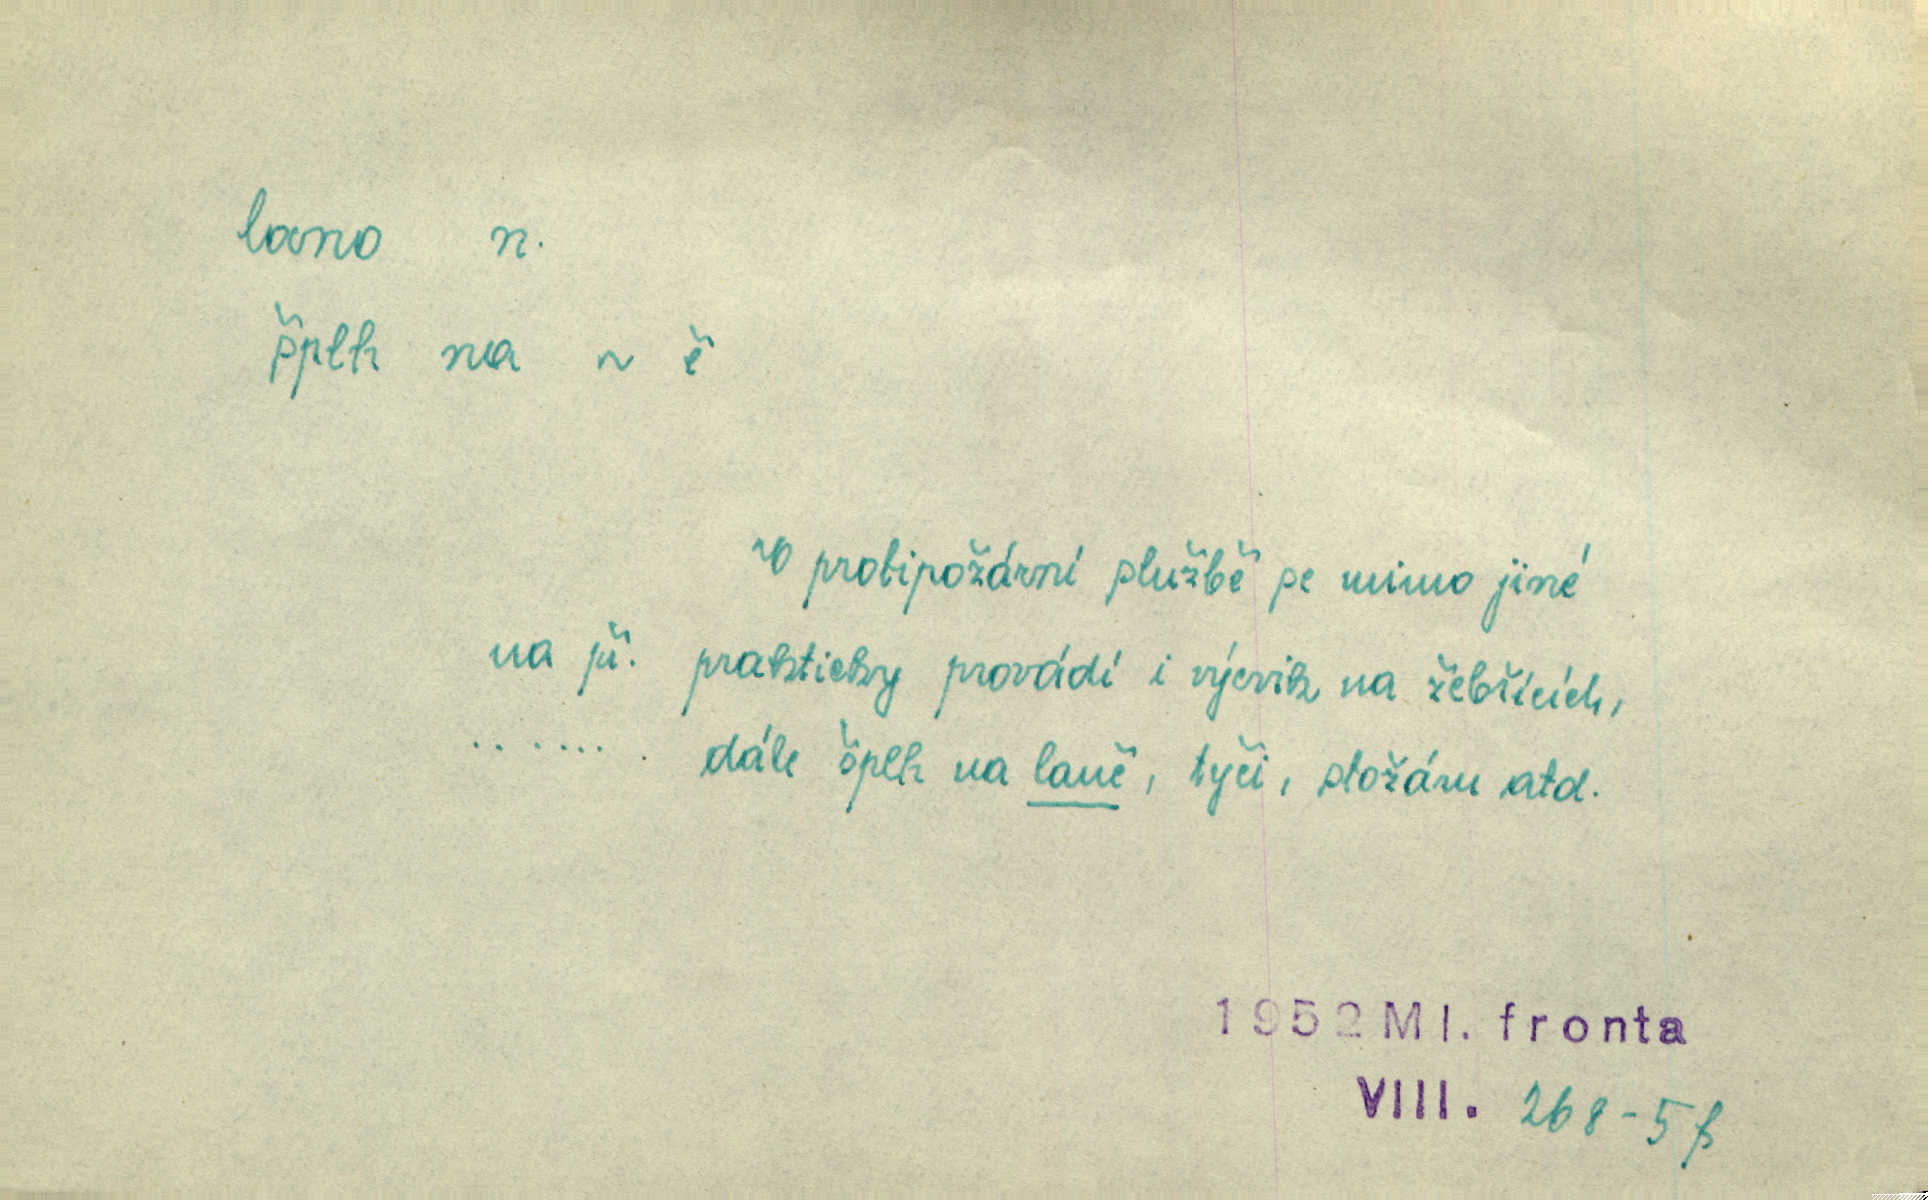 lano n.
šplh na ~ ě
V protipožární službě se mimo jiné
na př. prakticky provádí i výcvik na žebřících,
.......... dále šplh na laně, tyči, stožáru atd.
1952 Ml. fronta
VIII. 268-5β